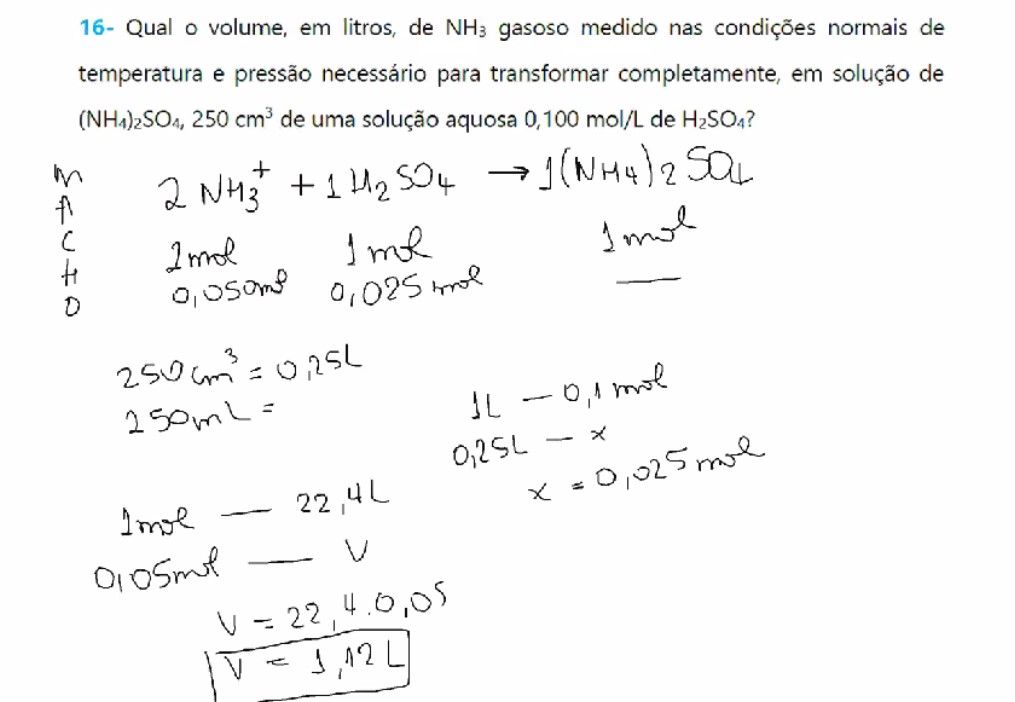 16- Qual o volume, em litros, de NH₃ gasoso medido nas condições normais de
temperatura e pressão necessário para transformar completamente, em solução de
(NH₄)₂SO₄, 250 cm³ de uma solução aquosa 0,100 mol/L de H₂SO₄?
MACHO
2 NH₃⁺ + 1 H₂SO₄ → 1(NH4)2SO₄
2mol 1 mol 1 mol
0,050mol 0,025 mol —
250cm³ = 0,25L
250mL =
1L — 0,1 mol
0,25L — x
x = 0,025 mol
1mol — 22,4L
0,05mol — V
V = 22,4.0,05
V = 1,12L